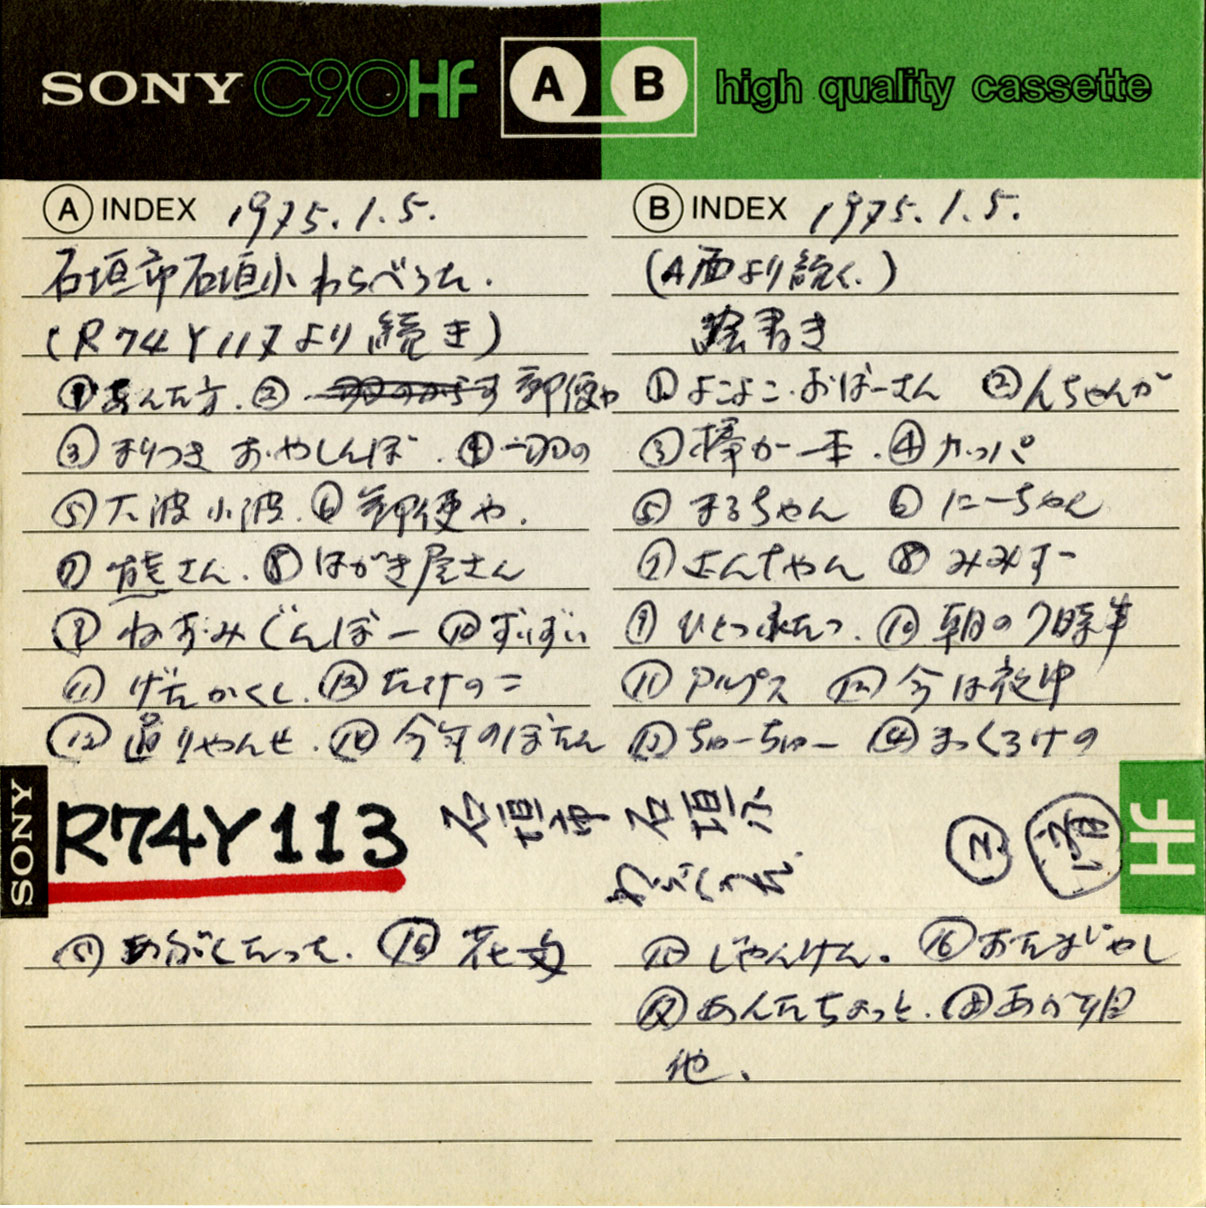 SONY C90Hf A B high quality cassette
A INDEX 1975.1.5.
石垣市石垣小わらべうた.
(R74Y117より続き)
①あんた方.② 郵便や
③まりつき おやしんぼ.④一羽の
⑤大波小波.⑥郵便や.
⑦熊さん.⑧はがき屋さん
⑨ねずみぐんぼー⑩ずいずい
⑪げたかくし.⑬たけのこ
⑫通りゃんせ.⑭今年のぼたん
B INDEX 1975.1.5.
(A面より続く.)
絵書き
①よこよこ.おばーさん ②んちゃんが
③棒が一本.④カッパ
⑤まるちゃん ⑥にーちゃん
⑦さんちゃん ⑧みみずー
⑨ひとつふたつ.⑩朝の7時半
⑪アルプス ⑫今は夜中
⑬ちゅーちゅー ⑭まっくろけの
SONY
R74Y113
石垣市石垣小
わらべうた.
Hf
⑮あぶくたった.⑯花文
⑮じゃんけん.⑯おたまじゃし
⑰あんたちょっと.⑱あが
他.